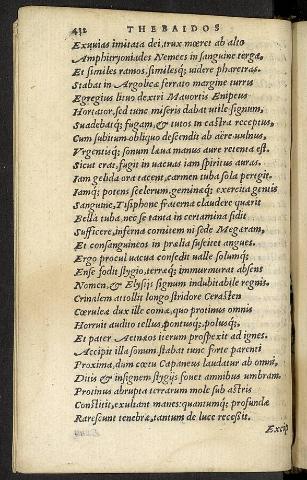 432 THEBAIDOS
Exuuias imitata dei, trux mœret ab alto
Amphitryoniades Nemees in sanguine terga,
Et similes ramos, similesq; uidere pharetras.
Stabat in Argolica ferrato margine turris
Egregius lituo dextri Mauortis Enipeus
Hortator, sed tunc miseris dabat utile signum,
Suadebatq; fugam, & tutos in castra receptus,
Cum subitum obliquo descendit ab aëre uulnus,
Vrgentisq; sonum laua manus aure retenta est.
Sicut erat, fugit in uacuas iam spiritus auras.
Iam gelida ora tacent, carmen tuba sola peregit.
Iamq; potens scelerum, geminæq; exercita gentis
Sanguine, Tisiphone fraterna claudere quærit
Bella tuba, nec se tanta in certamina fidit
Sufficere, inferna comitem ni sede Megæram,
Et consanguineos in prælia suscitet angues.
Ergo procul uacua consedit ualle solumq;
Ense fodit stygio, terræq; immurmurat absens
Nomen, & Elysijs signum indubitabile regnis.
Crinalem attollit longo stridore Cerasten
Cœruleæ dux ille comæ, quo protinus omnis
Horruit audito tellus, pontusq;, polusq;,
Et pater Aetnæos iterum prospexit ad ignes.
Accipit illa sonum stabat tunc forte parenti
Proxima, dum cœtu Capaneus laudatur ab omni,
Ditis & insignem stygijs fouet amnibus umbram.
Protinus abrupta terrarum mole sub astris
Constitit, exultant manes: quantumq; profundæ
Rarescunt tenebræ, tantum de luce recessit.
Excip